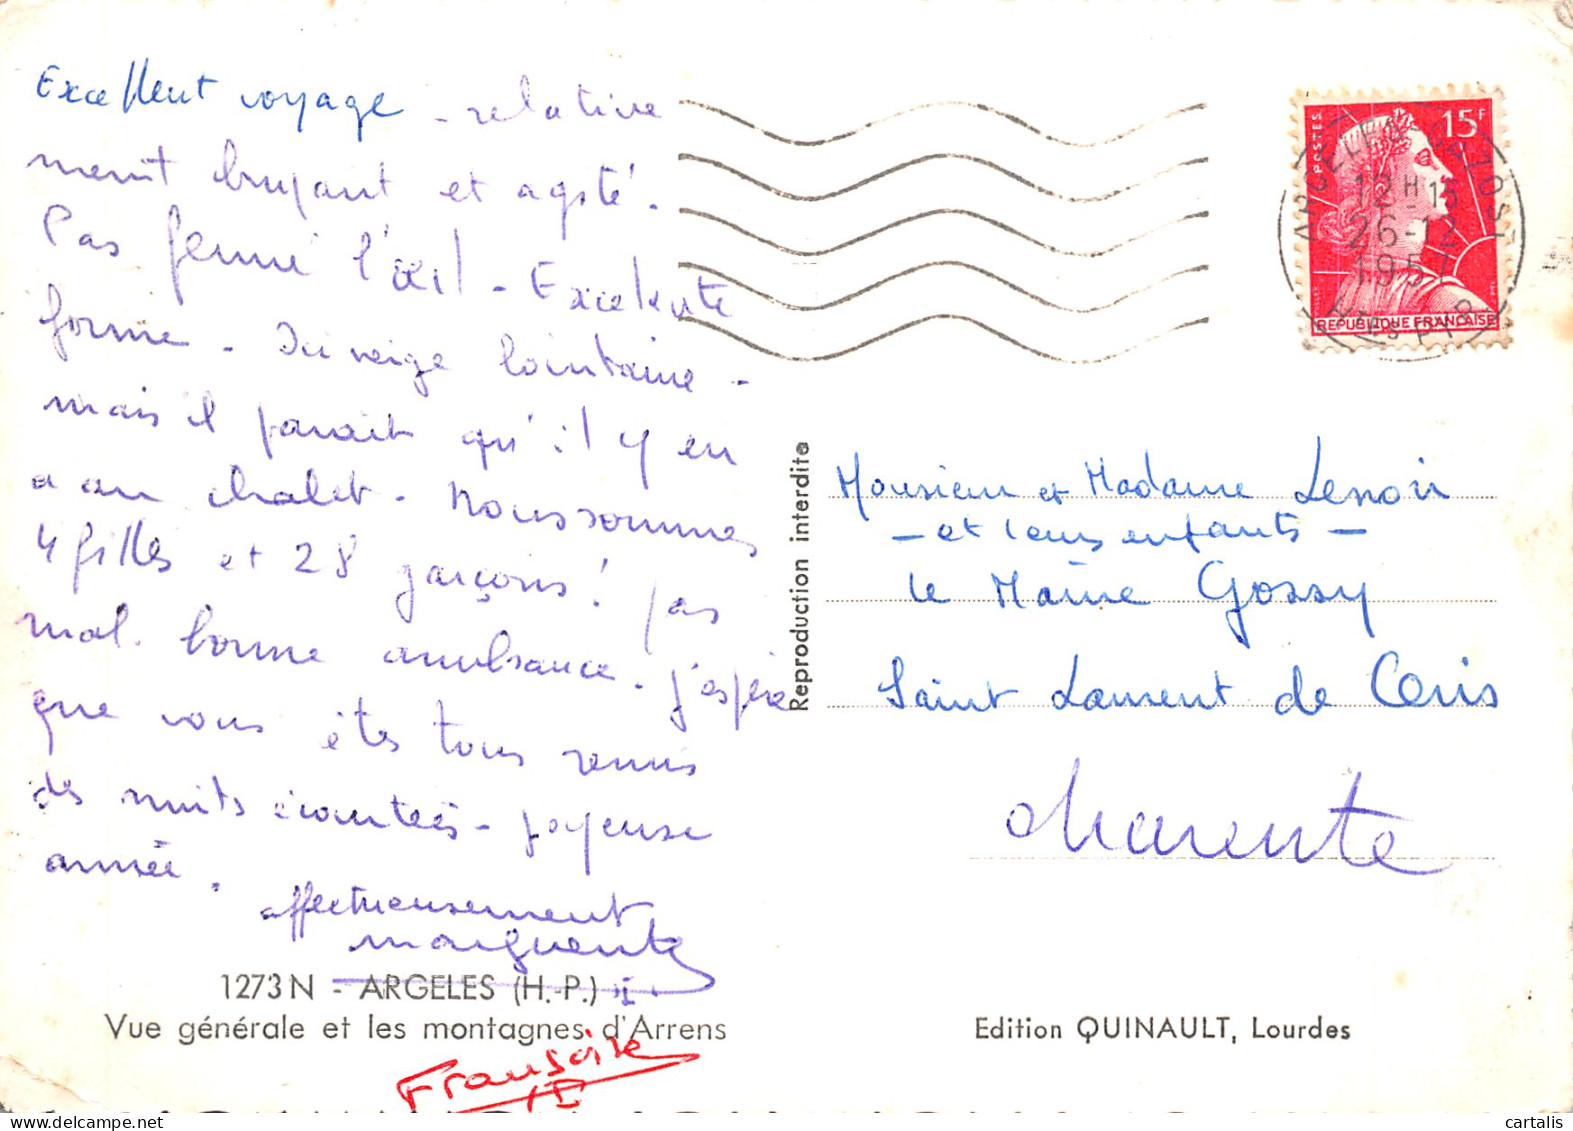 Excellent voyage - relative
ment bruyant et agité.
Pas fermé l'œil - Excelente
forme - Ici neige lointaine -
mais il parait qu'il y en
a au chalet - Nous sommes
4 filles et 28 garçons! pas
mal. bonne ambiance. J'espère
que vous êtes tous remis
des nuits écourtées - joyeuse
année.
affectueusement
marguerite
1273 N - ARGELES (H.-P.)
Vue générale et les montagnes d'Arrens
Françoise
Reproduction interdite
POSTES
15F
REPUBLIQUE FRANÇAISE
ARGELES GAZOST
12H15
26-12
1957
HTES PYR.
Monsieur et Madame Lenoir
- et leurs enfants -
le Maine Gossy
Saint Laurent de Céris
Charente
Edition QUINAULT, Lourdes
www.cartalis.com